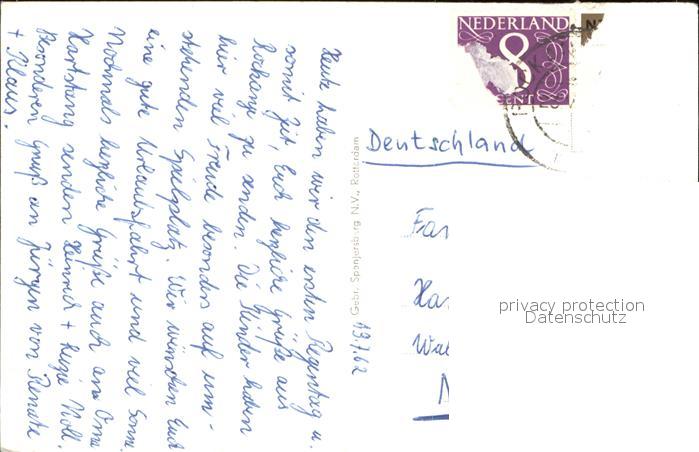 Heute haben wir den ersten Regentag u.
somit Zeit, Euch herzliche Grüße aus
zu senden. Die Kinder haben
hier viel Freude besonders auf um-
stehenden Spielplatz. Wir wünschen Euch
eine gute Urlaubsfahrt und viel Sonne.
Nochmals herzliche Grüße auch an Oma
Hartstung senden Heinrich + Noll.
Besonderen Gruß an Jürgen von Renate
+ Klaus.
Gebr. Spanjersberg N.V., Rotterdam
19.7.62
NEDERLAND
8
CENT
N
Deutschland
Fam
Ha
Wa
N
privacy protection
Datenschutz